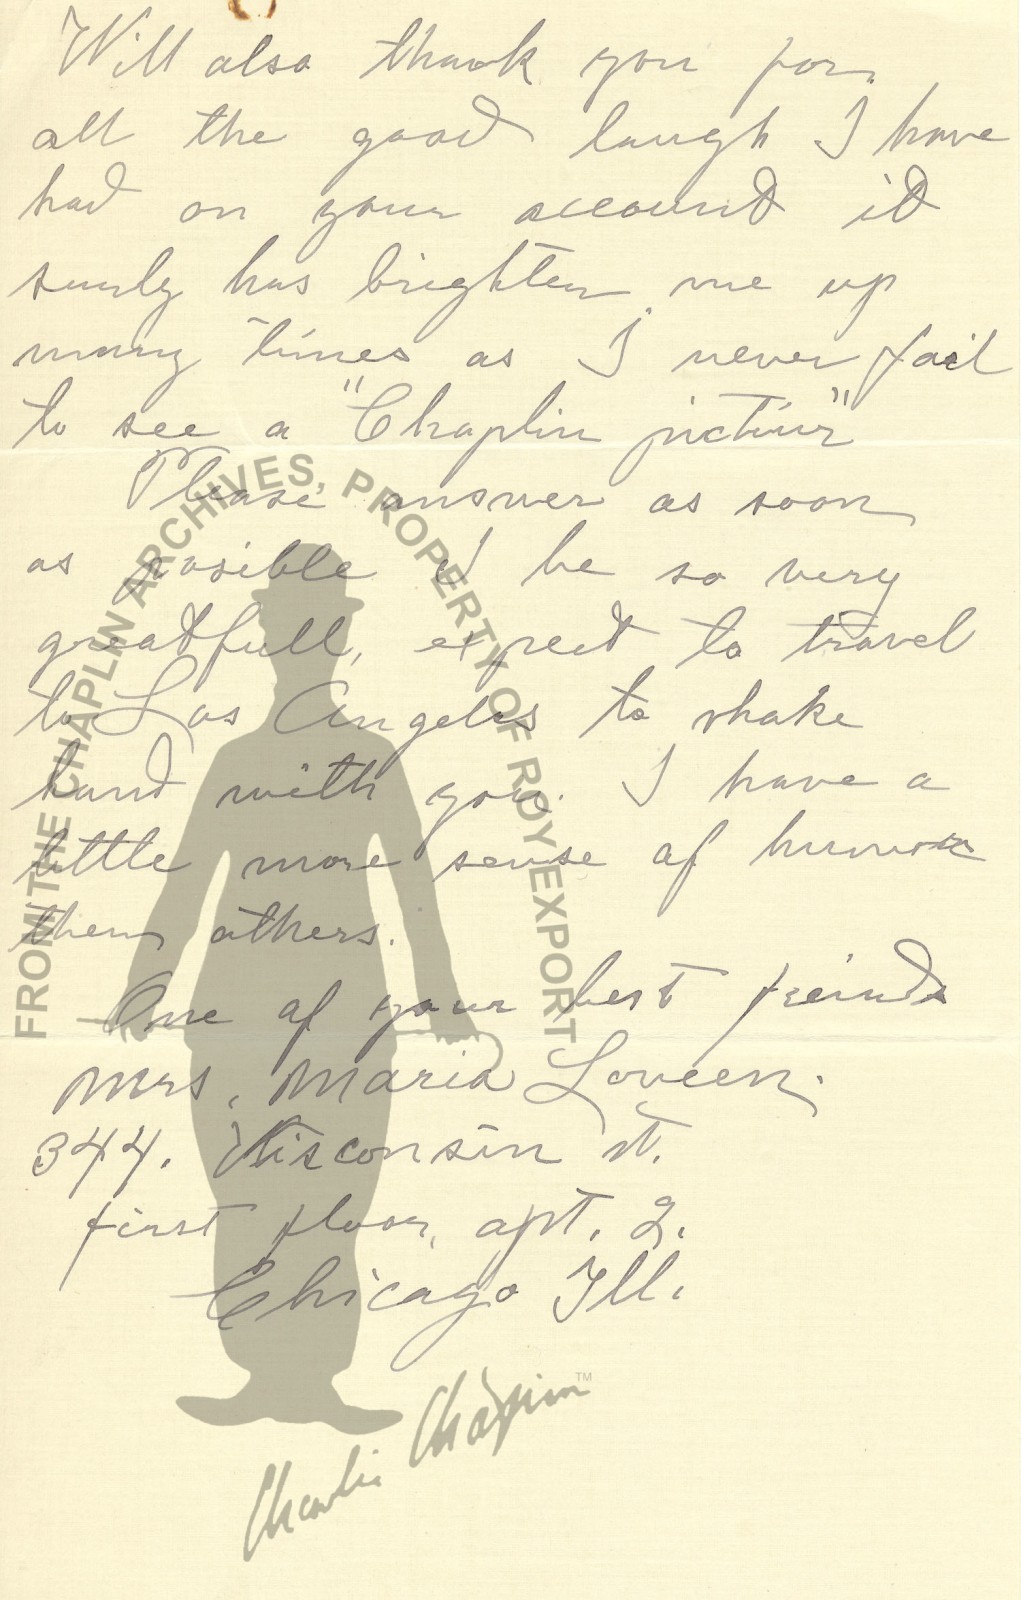 Will also thank you for
all the good laugh I have
had on your accound it
surely has brighten me up
many times as I never fail
to see a "Chaplin pictur"
Please answer as soon
as posible I be so very
greatfull, expect to travel
to Los Angeles to shake
hand with you. I have a
little more sense of humor
then others.
One of your best freinds
Mrs. Maria Loveen.
344. Wisconsin st.
first floor, apt. 2.
Chicago Ill.
FROM THE CHAPLIN ARCHIVES, PROPERTY OF ROY EXPORT
Charlie Chaplin™